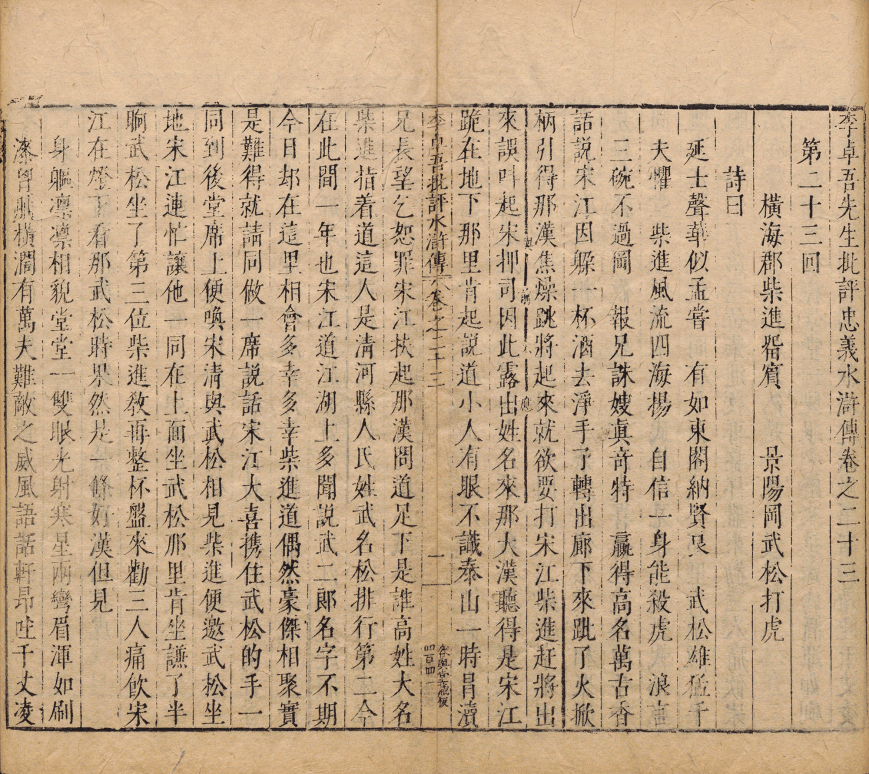 李卓吾先生批評忠義水滸傳卷之二十三
第二十三回
橫海郡柴進留賓　景陽岡武松打虎
詩曰
延士聲華似孟嘗　有如東閣納賢良　武松雄猛千
夫懼　柴進風流四海揚　自信一身能殺虎　浪言
三碗不過岡　報兄誅嫂真奇特　贏得高名萬古香
話說宋江因躱一杯酒去淨手了轉出廊下來跐了火掀
柄引得那漢焦燥跳將起來就欲要打宋江柴進赶將出
來誤叫起宋押司因此露出姓名來那大漢聽得是宋江
跪在地下那里肯起說道小人有眼不識泰山一時冐瀆
李卓吾批評水滸傳　卷之二十三　一
兄長望乞恕罪宋江扶起那漢問道足下是誰高姓大名
柴進指着道這人是清河縣人氏姓武名松排行第二今
在此間一年也宋江道江湖上多聞說武二郞名字不期
今日却在這里相會多幸多幸柴進道偶然豪傑相聚實
是難得就請同做一席說話宋江大喜携住武松的手一
同到後堂席上便喚宋清與武松相見柴進便邀武松坐
地宋江連忙讓他一同在上面坐武松那里肯坐謙了半
晌武松坐了第三位柴進敎再整杯盤來勸三人痛飮宋
江在燈下看那武松時果然是一條好漢但見
身軀凛凛相貌堂堂一雙眼光射寒星兩彎眉渾如刷
漆胷脯橫濶有萬夫難敵之威風語話軒昂吐千丈凌